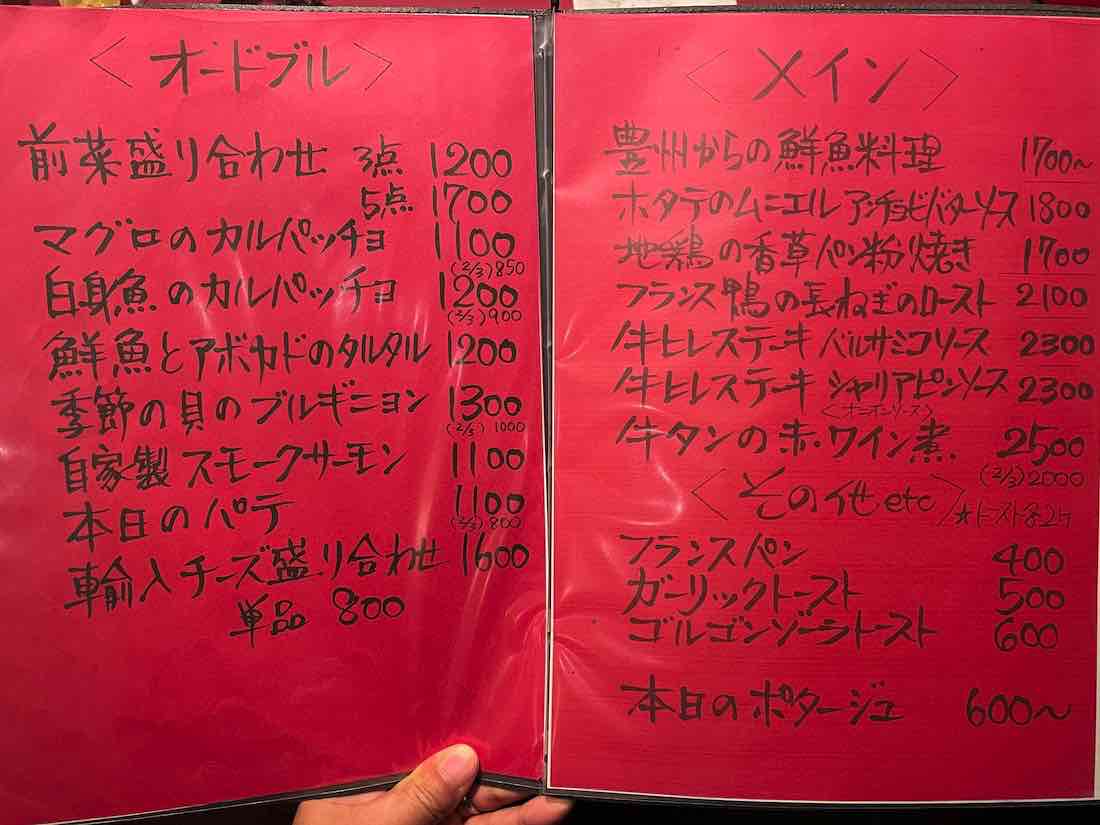 〈オードブル〉
前菜盛り合わせ 3点 1200
5点 1700
マグロのカルパッチョ 1100
(2/3)850
白身魚のカルパッチョ 1200
(2/3)900
鮮魚とアボカドのタルタル 1200
季節の貝のブルギニョン 1300
(2/3)1000
自家製スモークサーモン 1100
本日のパテ 1100
(2/3)800
輸入チーズ盛り合わせ 1600
単品 800
〈メイン〉
豊州からの鮮魚料理 1700~
ホタテのムニエル アンチョビバターソース 1800
地鶏の香草パン粉焼き 1700
フランス鴨の長ねぎのロースト 2100
牛ヒレステーキ バルサミコソース 2300
牛ヒレステーキ シャリアピンソース 2300
〈オニオンソース〉
牛タンの赤ワイン煮 2500
(2/3)2000
〈その他etc〉
★トースト各2ケ
フランスパン 400
ガーリックトースト 500
ゴルゴンゾーラトースト 600
本日のポタージュ 600~